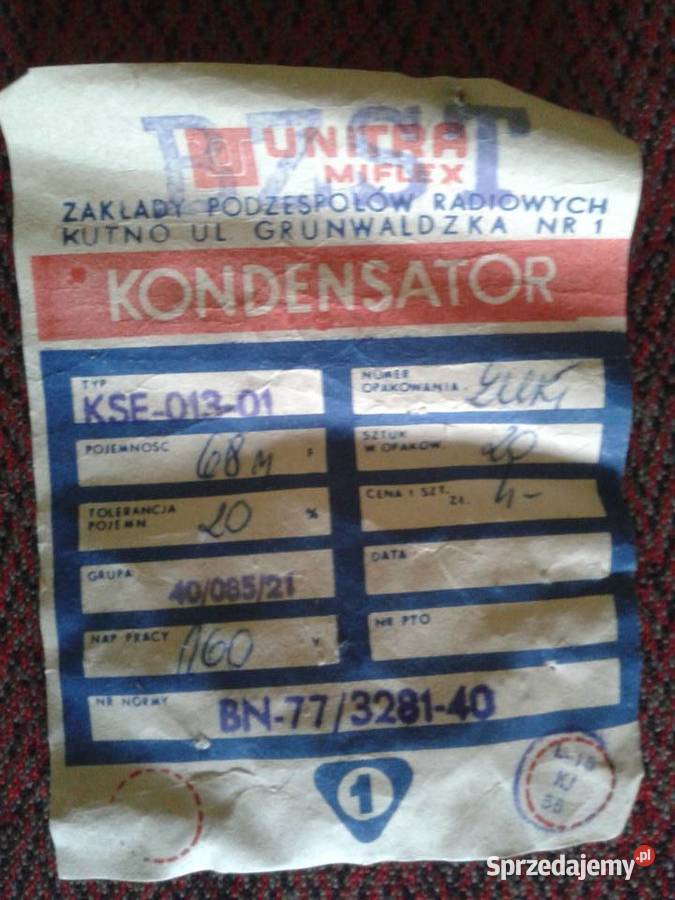 UNITRA
MIFLEX
ZAKŁADY PODZESPOŁÓW RADIOWYCH
KUTNO UL. GRUNWALDZKA NR 1
KONDENSATOR
TYP
KSE-013-01
NUMER
OPAKOWANIA
POJEMNOŚĆ 68 F
SZTUK
W OPAKOW. 20
TOLERANCJA
POJEMN. 20 %
CENA 1 SZT.
ZŁ. 4-
GRUPA 40/085/21
DATA
NAP PRACY 160 V
NR PTO
NR NORMY BN-77/3281-40
1
KJ
Sprzedajemy.pl